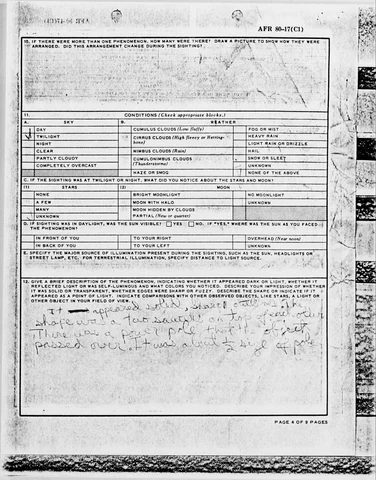 AFR 80-17(C1)
10. IF THERE WERE MORE THAN ONE PHENOMENON, HOW MANY WERE THERE? DRAW A PICTURE TO SHOW HOW THEY WERE
ARRANGED. DID THIS ARRANGEMENT CHANGE DURING THE SIGHTING?
11. CONDITIONS (Check appropriate blocks.)
A. SKY B. WEATHER
DAY CUMULUS CLOUDS (Low fluffy) FOG OR MIST
TWILIGHT CIRRUS CLOUDS (High fleecy or Herring-bone) HEAVY RAIN
NIGHT LIGHT RAIN OR DRIZZLE
CLEAR NIMBUS CLOUDS (Rain) HAIL
PARTLY CLOUDY CUMULONIMBUS CLOUDS (Thunderstorms) SNOW OR SLEET
COMPLETELY OVERCAST UNKNOWN
HAZE OR SMOG NONE OF THE ABOVE
C. IF THE SIGHTING WAS AT TWILIGHT OR NIGHT, WHAT DID YOU NOTICE ABOUT THE STARS AND MOON?
(1) STARS (2) MOON
NONE BRIGHT MOONLIGHT NO MOONLIGHT
A FEW MOON WITH HALO UNKNOWN
MANY MOON HIDDEN BY CLOUDS
UNKNOWN PARTIAL (New or quarter)
D. IF SIGHTING WAS IN DAYLIGHT, WAS THE SUN VISIBLE? YES NO. IF "YES," WHERE WAS THE SUN AS YOU FACED
THE PHENOMENON?
IN FRONT OF YOU TO YOUR RIGHT OVERHEAD (Near noon)
IN BACK OF YOU TO YOUR LEFT UNKNOWN
E. SPECIFY THE MAJOR SOURCE OF ILLUMINATION PRESENT DURING THE SIGHTING, SUCH AS THE SUN, HEADLIGHTS OR
STREET LAMP, ETC. FOR TERRESTRIAL ILLUMINATION, SPECIFY DISTANCE TO LIGHT SOURCE.
12. GIVE A BRIEF DESCRIPTION OF THE PHENOMENON, INDICATING WHETHER IT APPEARED DARK OR LIGHT, WHETHER IT
REFLECTED LIGHT OR WAS SELF-LUMINOUS AND WHAT COLORS YOU NOTICED. DESCRIBE YOUR IMPRESSION OF WHETHER
IT WAS SOLID OR TRANSPARENT, WHETHER EDGES WERE SHARP OR FUZZY. DESCRIBE THE SHAPE OR INDICATE IF IT
APPEARED AS A POINT OF LIGHT. INDICATE COMPARISONS WITH OTHER OBSERVED OBJECTS, LIKE STARS, A LIGHT OR
OTHER OBJECT IN YOUR FIELD OF VIEW.
It appeared solid, sharp
shape was a
There was a pole
passed over. It was about ½ size of pole
PAGE 4 OF 9 PAGES